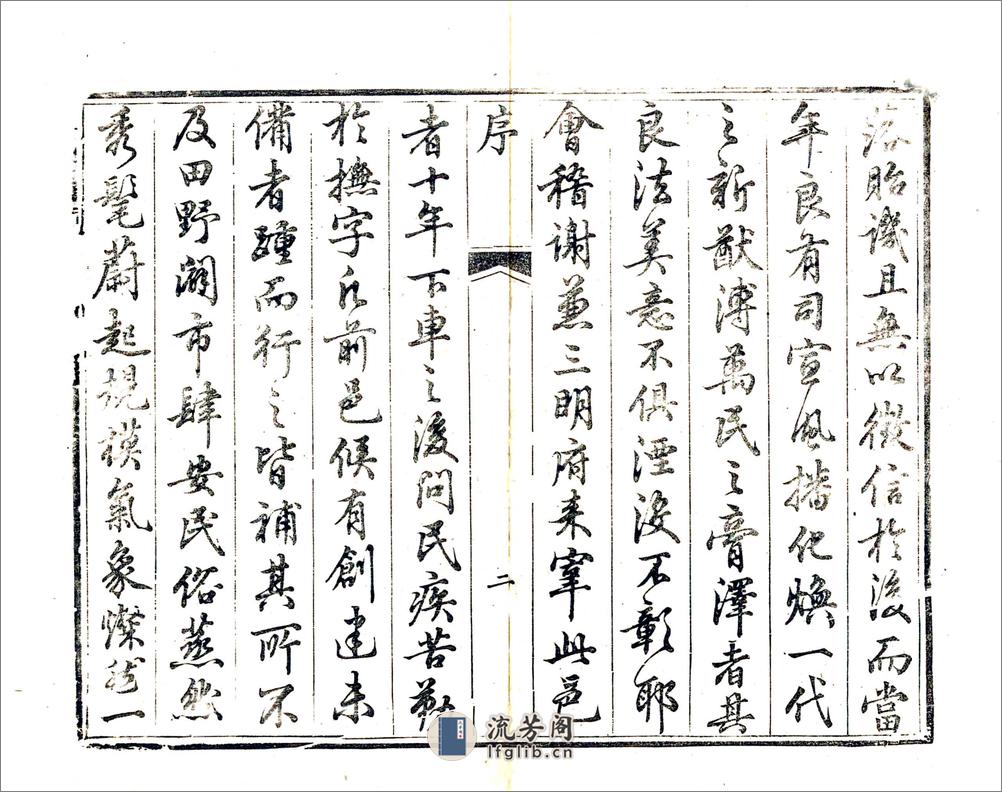 落貽譏且無以徵信於後而當
年良有司宣風播化煥一代
之新猷溥萬民之膏澤者其
良法美意不俱湮沒不彰耶
會稽謝蒽三明府來宰此邑
序
二
者十年下車之後問民疾苦勤
於撫字凡前邑侯有創建未
備者踵而行之皆補其所不
及田野闢市肆安民俗蒸然
秀髦蔚起規模氣象燦然一
流芳阁
lfglib.cn